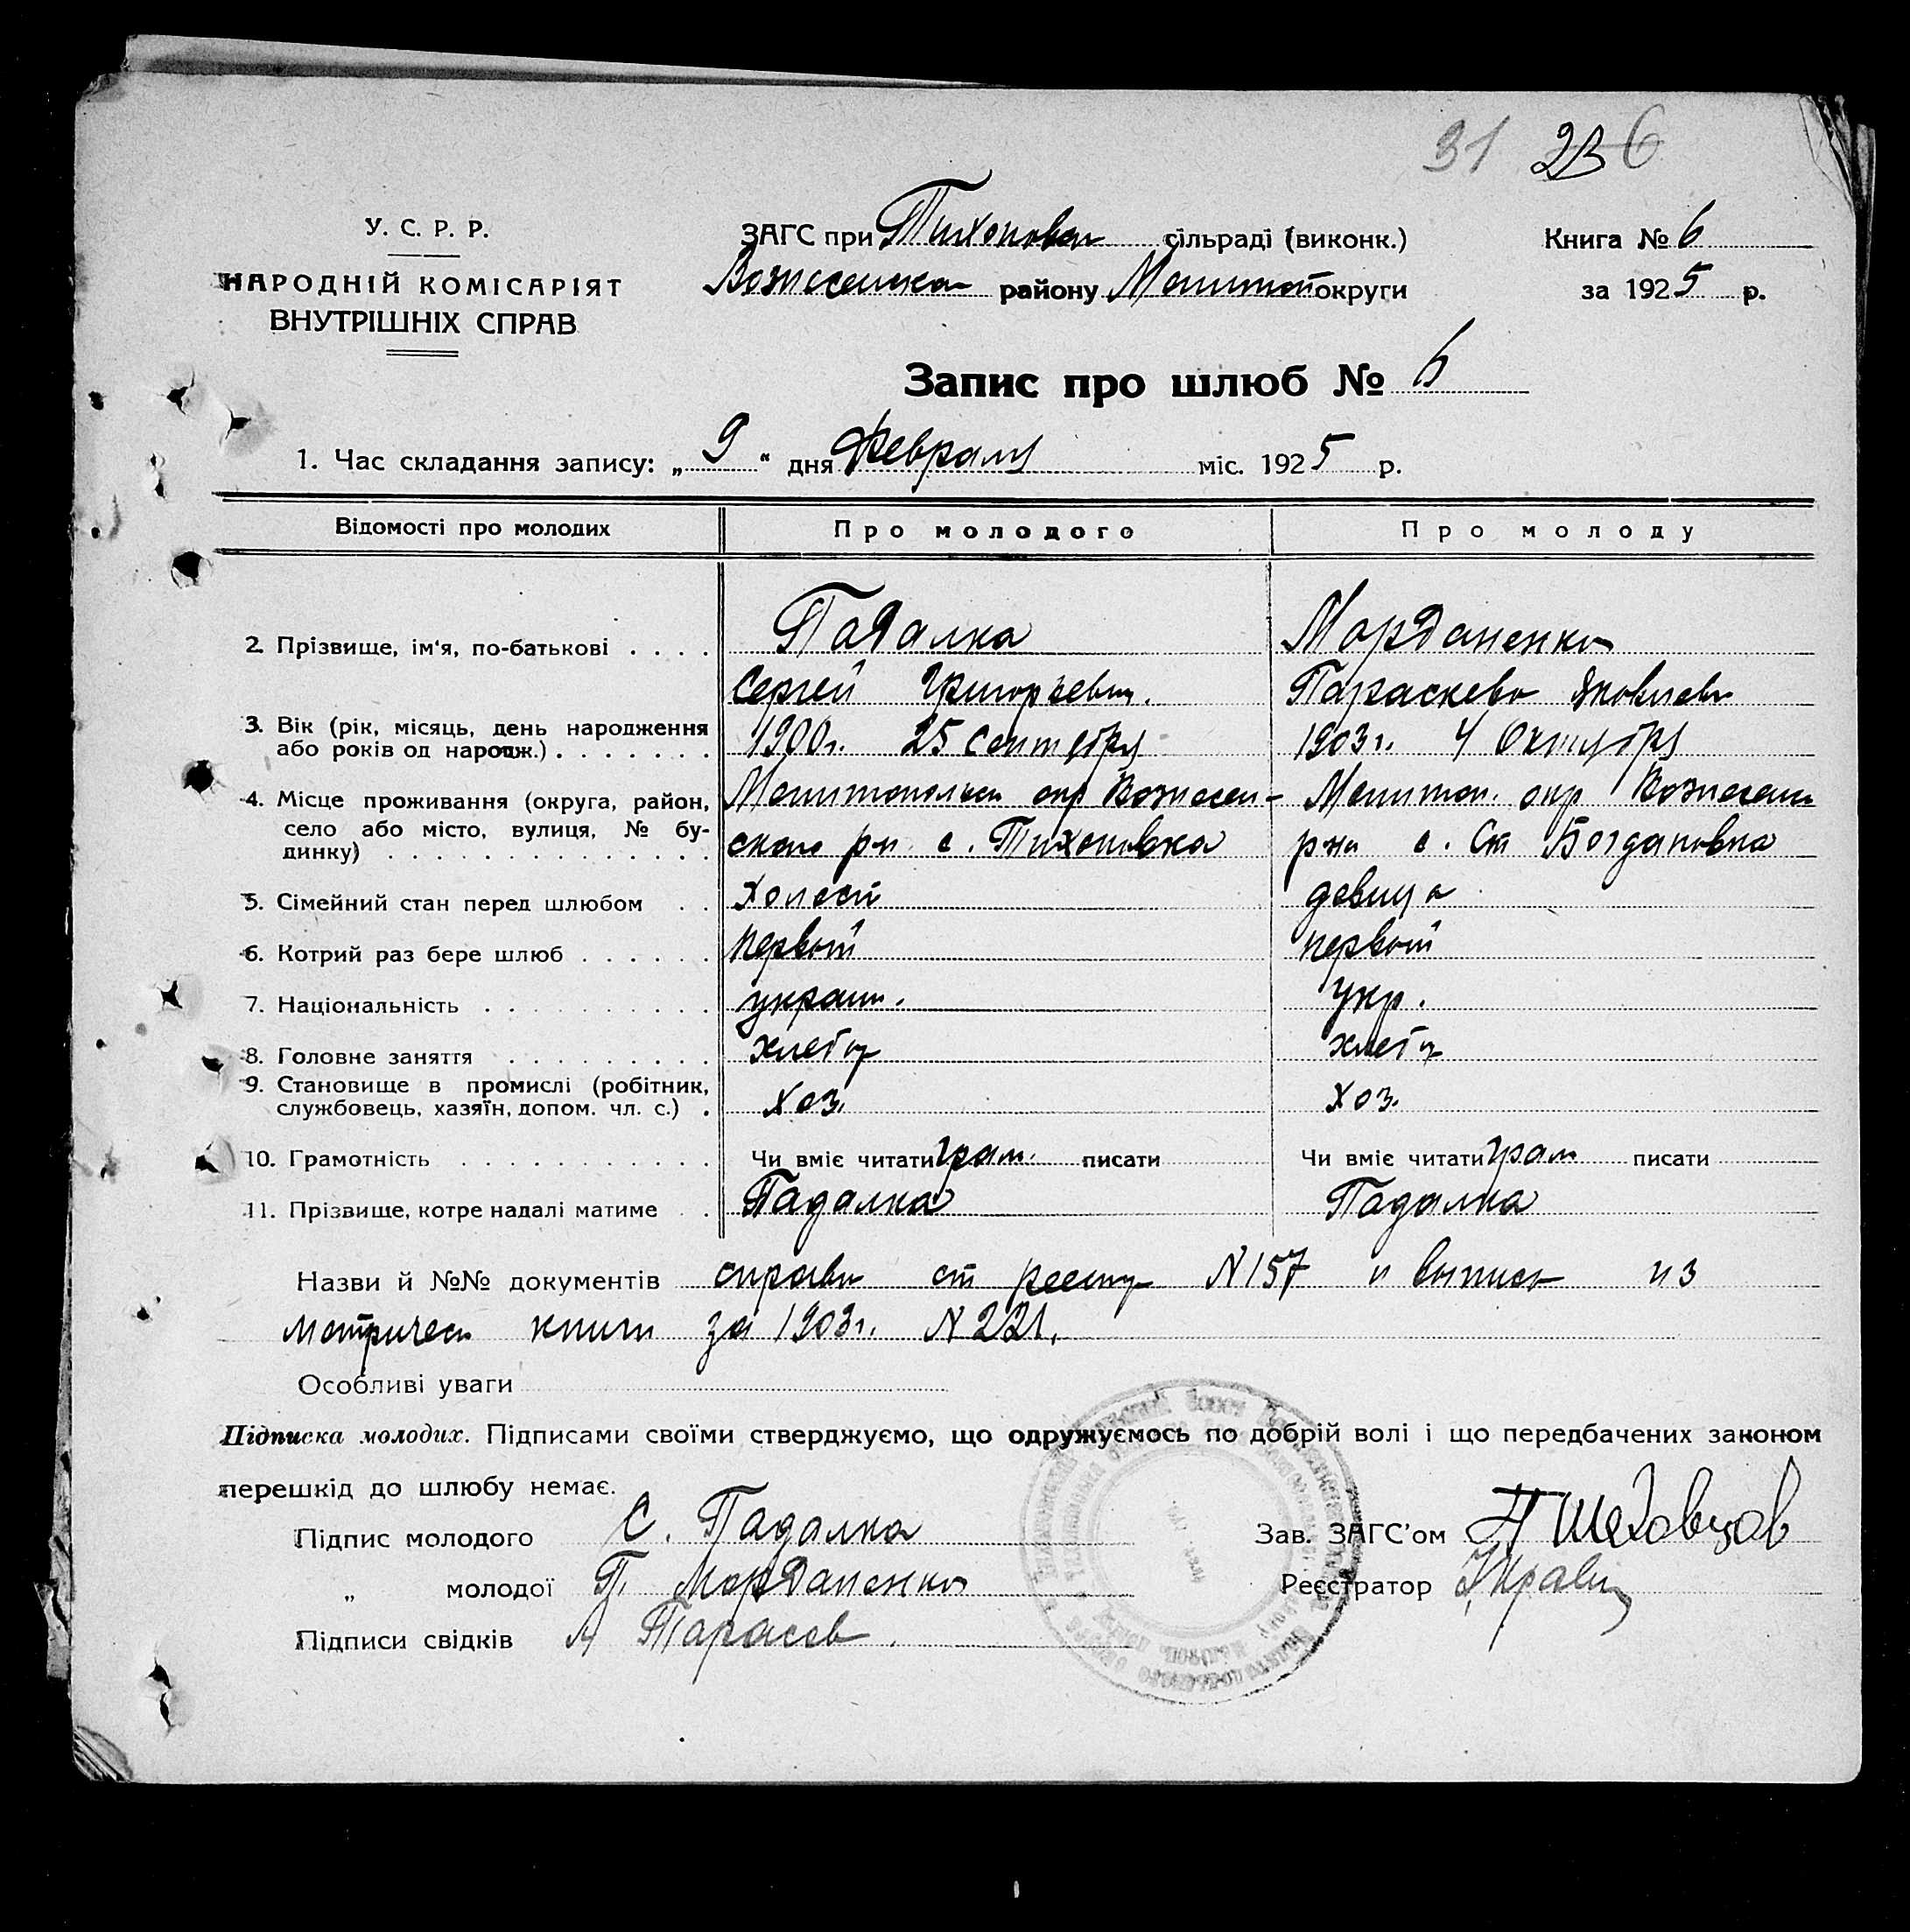 31 6
У. С. Р. Р.
НАРОДНІЙ КОМІСАРІЯТ
ВНУТРІШНІХ СПРАВ
ЗАГС при Тихонов сільраді (виконк.)
Вознесенск району Мелитоп округи
Книга № 6
за 1925 р.
Запис про шлюб № 6
1. Час складання запису: „ 9 “ дня Февраля міс. 1925 р.
Відомості про молодих Про молодого Про молоду
2. Прізвище, ім'я, по-батькові . . . . Падалка Морданенко
Сергей Григорьевич. Параскева Яковлевн
3. Вік (рік, місяць, день народження
або років од народж.) . . . . . . . 1900г. 25 сентября 1903г. 4 Октября
4. Місце проживання (округа, район, Мелитопольск окр Вознесен- Мелитоп. окр Вознесенс
село або місто, вулиця, № бу-
динку) . . . . . . . . . . . . . . ского рн с. Тихоновка р-на с. Ст Богдановка
5. Сімейний стан перед шлюбом . . холост девица
6. Котрий раз бере шлюб . . . . . . первый первый
7. Національність . . . . . . . . . . украин. Укр.
8. Головне заняття . . . . . . . . . хлебор хлебор
9. Становище в промислі (робітник,
службовець, хазяїн, допом. чл. с.) . хоз. хоз.
10. Грамотність . . . . . . . . . . . Чи вміє читати грам. писати Чи вміє читати грам писати
11. Прізвище, котре надалі матиме . . Падалка Падалка
Назви й №№ документів справк ст реестр N157 и выпись из
метрическ книги за 1903г. N 221.
Особливі уваги
Підписка молодих. Підписами своїми стверджуємо, що одружуємось по добрій волі і що передбачених законом
перешкід до шлюбу немає.
Підпис молодого С. Падалка
Зав. ЗАГС'ом П Шеховцов
„ молодої П. Морданенко
Реєстратор
Підписи свідків А Тарасев.